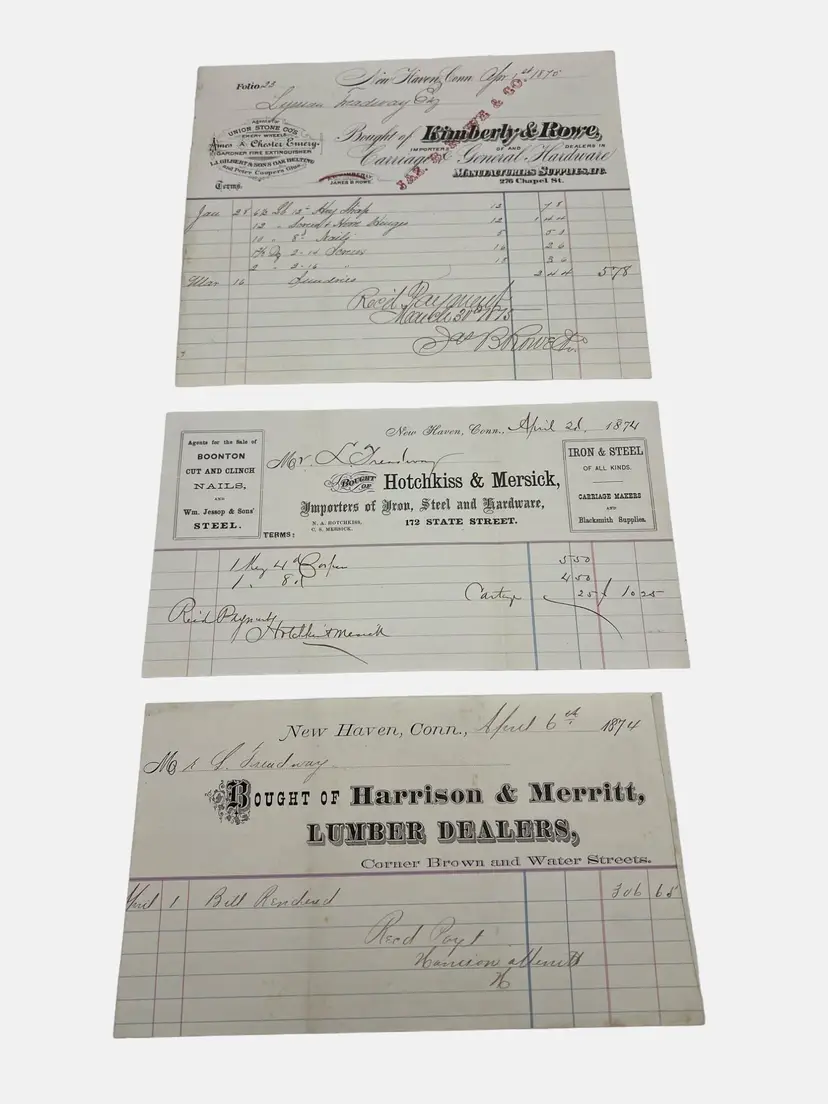 Folio 22
New Haven, Conn. Apr 1st 1875
Lyman Treadway Esq
Agents for
UNION STONE CO'S
EMERY WHEELS.
Ames & Chester Emery.
GARDNER FIRE EXTINGUISHER
L.I. GILBERT & SONS OAK BELTING
and Peter Coopers Glue
Terms.
Bought of Kimberly & Rowe,
IMPORTERS OF AND DEALERS IN
Carriage & General Hardware
MANUFACTURERS SUPPLIES, ETC.
276 Chapel St.
JAMES B. ROWE.
JAS. B. ROWE & CO.
Jan 28 6½ lb 12 in Hay Strap 12 78
12 " Screw & Hinges 12 1 44
10 " 8d Nails 5 50
2-14 Screws 16 26
2 " 2-16 " 18 36
Mar 16 Sundries 2 44 5 78
Recd Payment
March 30th 1875
Jas B Rowe & Co
Agents for the Sale of
BOONTON
CUT AND CLINCH
NAILS,
AND
Wm. Jessop & Sons'
STEEL.
New Haven, Conn., April 2d, 1874
Mr. L. Treadway
BOUGHT OF Hotchkiss & Mersick,
Importers of Iron, Steel and Hardware,
N. A. HOTCHKISS,
C. S. MERSICK.
172 STATE STREET.
TERMS:
IRON & STEEL
OF ALL KINDS.
CARRIAGE MAKERS
AND
Blacksmith Supplies.
1 Keg 4d 5 50
1 " 8d 4 50
Cartage 25 10 25
Recd Payment
Hotchkiss & Mersick
New Haven, Conn., April 6th 1874
Mr L. Treadway
BOUGHT OF Harrison & Merritt,
LUMBER DEALERS,
Corner Brown and Water Streets.
April 1 Bill Rendered 306 65
Recd Payt
Harrison & Merritt